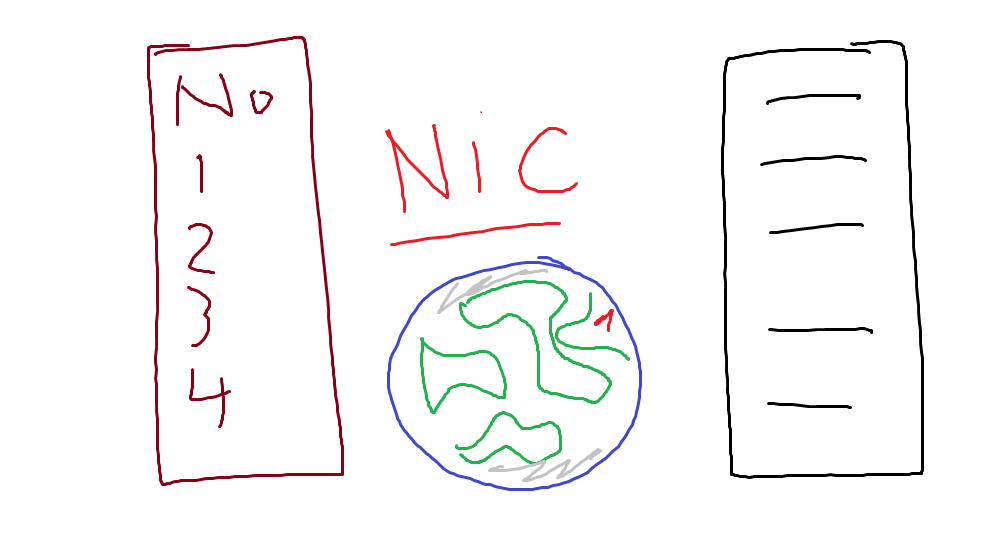 No
1
2
3
4
NiC
1